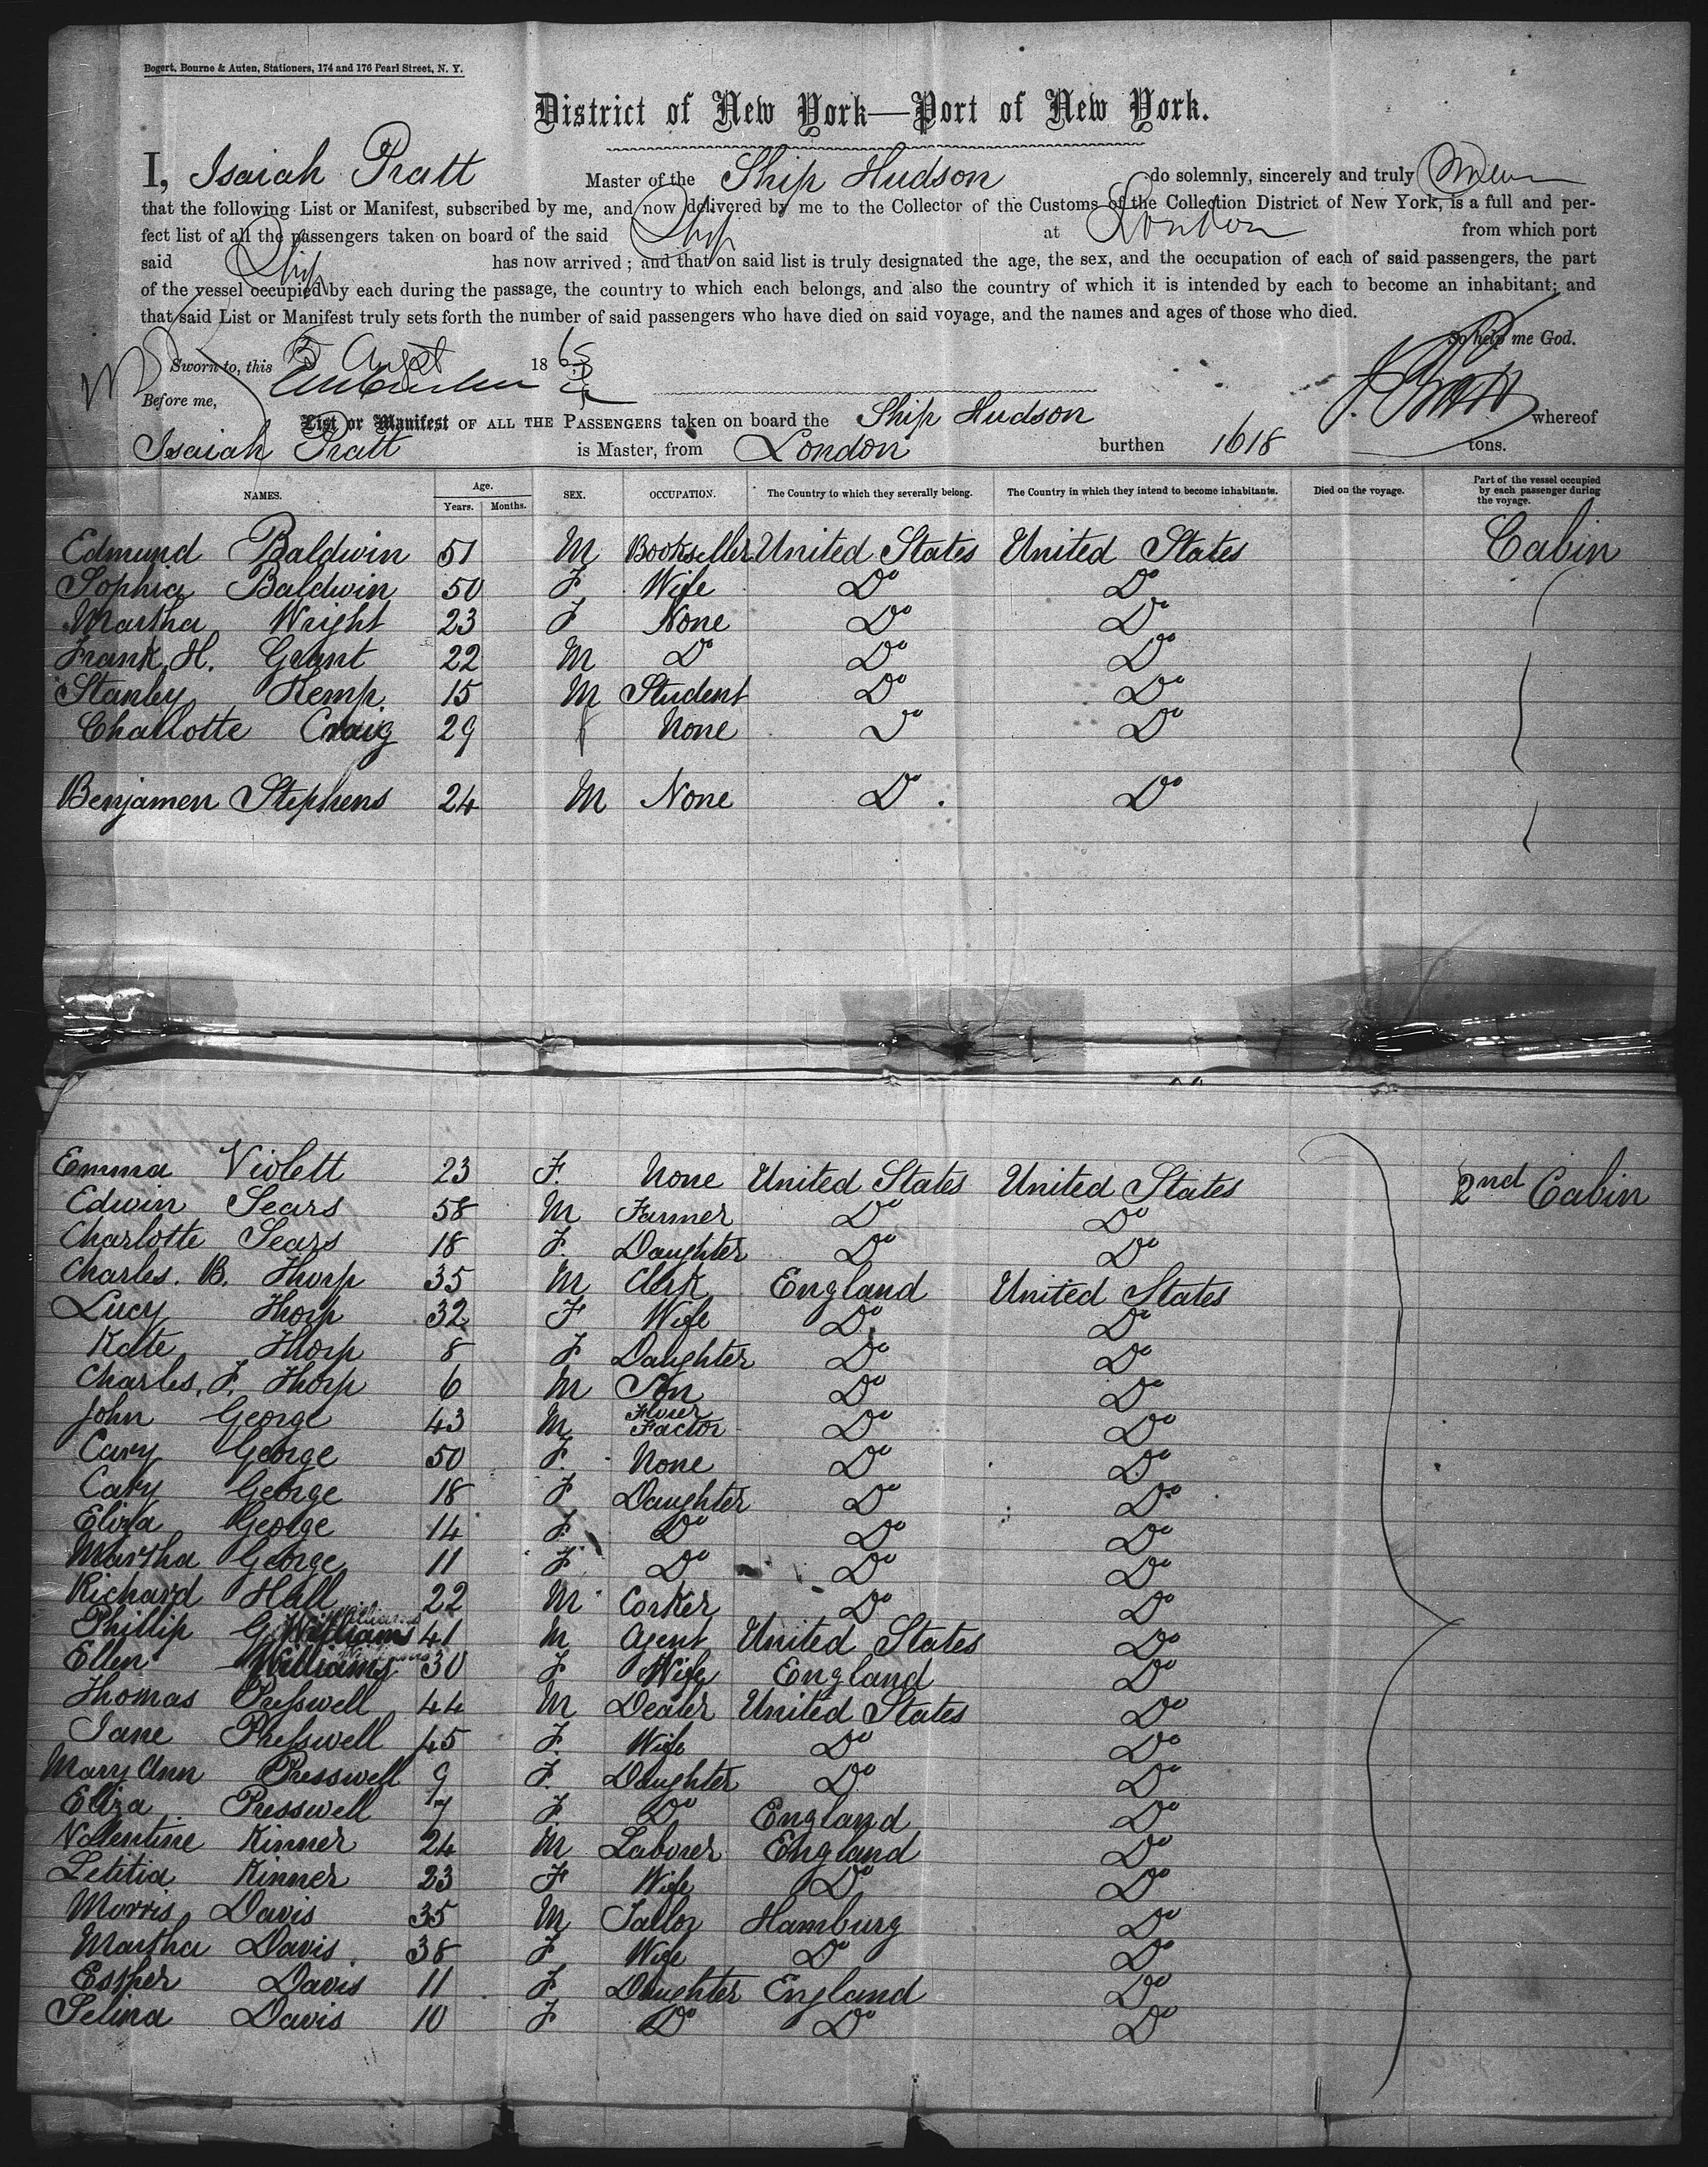 Bogert, Bourne & Auten, Stationers, 174 and 176 Pearl Street, N. Y.
District of New York—Port of New York.
I, Isaiah Pratt Master of the Ship Hudson do solemnly, sincerely and truly
that the following List or Manifest, subscribed by me, and now delivered by me to the Collector of the Customs of the Collection District of New York, is a full and per-
fect list of all the passengers taken on board of the said Ship at London from which port
said Ship has now arrived ; and that on said list is truly designated the age, the sex, and the occupation of each of said passengers, the part
of the vessel occupied by each during the passage, the country to which each belongs, and also the country of which it is intended by each to become an inhabitant; and
that said List or Manifest truly sets forth the number of said passengers who have died on said voyage, and the names and ages of those who died.
So help me God.
Sworn to, this 5 Augst 1865
Before me,
List or Manifest OF ALL THE PASSENGERS taken on board the Ship Hudson whereof
Isaiah Pratt is Master, from London burthen 1618 tons.
NAMES. Age. Years. Months. SEX. OCCUPATION. The Country to which they severally belong. The Country in which they intend to become inhabitants. Died on the voyage. Part of the vessel occupied by each passenger during the voyage.
Edmund Baldwin 51 M Bookseller United States United States Cabin
Sophia Baldwin 50 F Wife Do Do
Martha Wright 23 F None Do Do
Frank H. Grant 22 M Do Do Do
Stanley Kemp. 15 M Student Do Do
Charlotte Craig 29 f None Do Do
Benjamen Stephens 24 M None Do . Do
Emma Violett 23 F. None United States United States 2nd Cabin
Edwin Sears 58 M Farmer Do Do
Charlotte Sears 18 F. Daughter Do Do
Charles. B. Thorp 35 M Clerk England United States
Lucy Thorp 32 F Wife Do Do
Kate Thorp 8 F Daughter Do Do
Charles. F. Thorp 6 M Son Do Do
John George 43 M Factor Do Do
Cary George 50 F. None Do Do
Cary George 18 F Daughter Do Do
Eliza George 14 F Do Do Do
Martha George 11 F Do Do Do
Richard Hall 22 M Corker Do Do
Phillip G Williams 41 M Agent United States Do
Ellen Williams 30 F Wife England Do
Thomas Presswell 44 M Dealer United States Do
Jane Presswell 45 F. Wife Do Do
Mary Ann Presswell 9 F. Daughter Do Do
Eliza Presswell 7 F Do England Do
Valentine Kinner 24 M Laborer England Do
Letitia Kinner 23 F Wife Do Do
Morris Davis 35 M Tailor Hamburg Do
Martha Davis 38 F Wife Do Do
Esther Davis 11 F Daughter England Do
Selina Davis 10 F Do Do Do